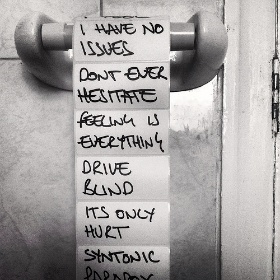 I HAVE NO
ISSUES
DONT EVER
HESITATE
FEELING IS
EVERYTHING
DRIVE
BLIND
ITS ONLY
HURT
SYNTONIC
PARADOX